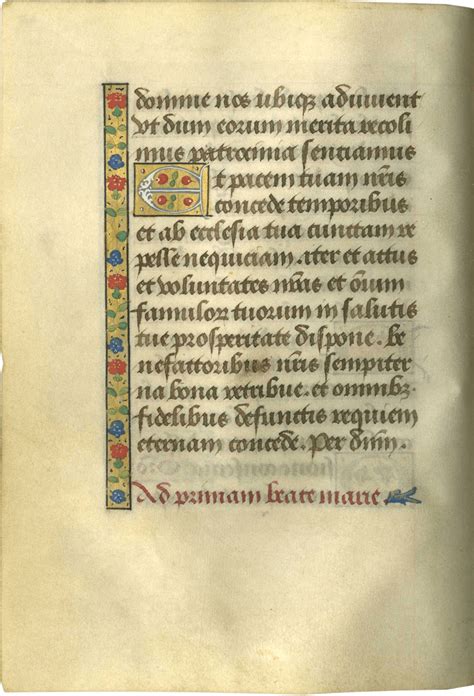 domine nos ubiqꝫ adiuvent
vt dum eorum merita recoli
mus patrocinia sentiamus
Et pacem tuam nr̄is
concede temporibus
et ab ecclesia tua cunctam re
pelle nequiciam. iter et actus
et voluntates nr̄as et om̄ium
famulor tuorum in salutis
tue prosperitate dispone. be
nefactoribus nr̄is sempiter
na bona retribue. et omnibꝫ
fidelibus defunctis requiem
eternam concede. Per dn̄m.
Ad primam beate marie